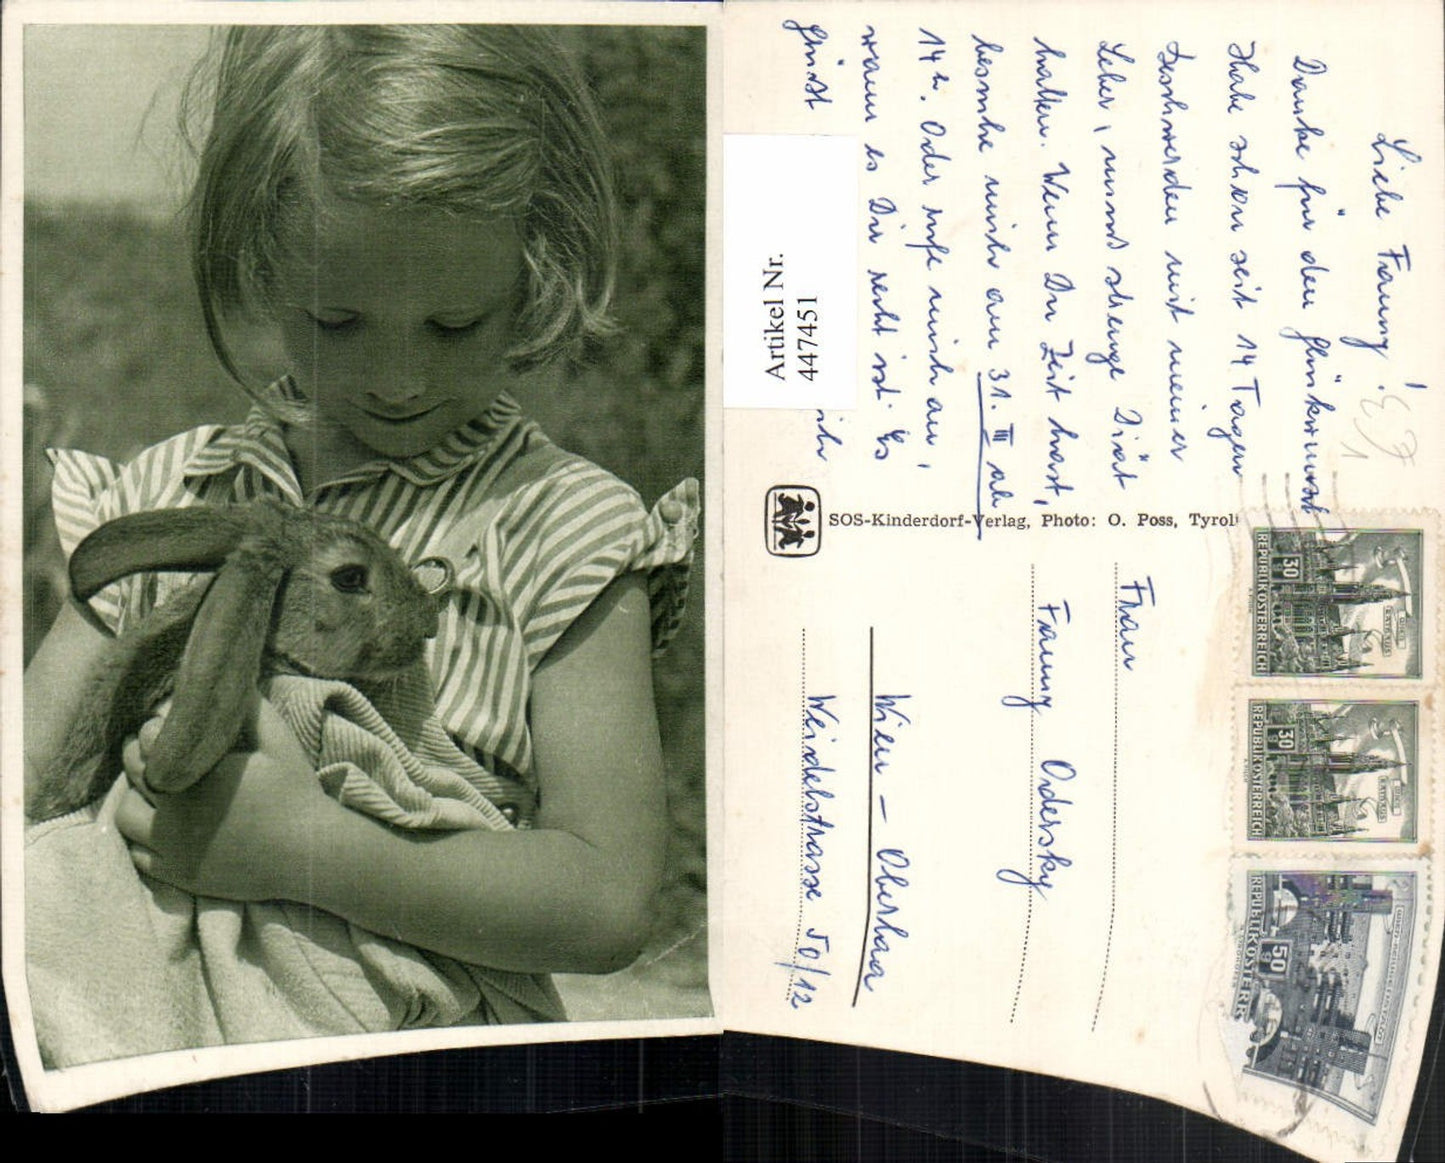 Liebe Fanny!
Danke für den Glückwunsch
Habe schon seit 14 Tagen
Beschwerden mit meiner
Leber, muss strenge Diät
halten. Wenn Du Zeit hast,
besuche mich am 31. III ab
14h. Oder rufe mich an,
wann es Dir recht ist. Es
grüsst
Artikel Nr.
447451
SOS-Kinderdorf-Verlag, Photo: O. Poss, Tyrol
Frau
Fanny Odersky
Wien – Oberlaa
Weidelstrasse 50/12
REPUBLIK ÖSTERREICH
30
REPUBLIK ÖSTERREICH
30
REPUBLIK ÖSTERR
50